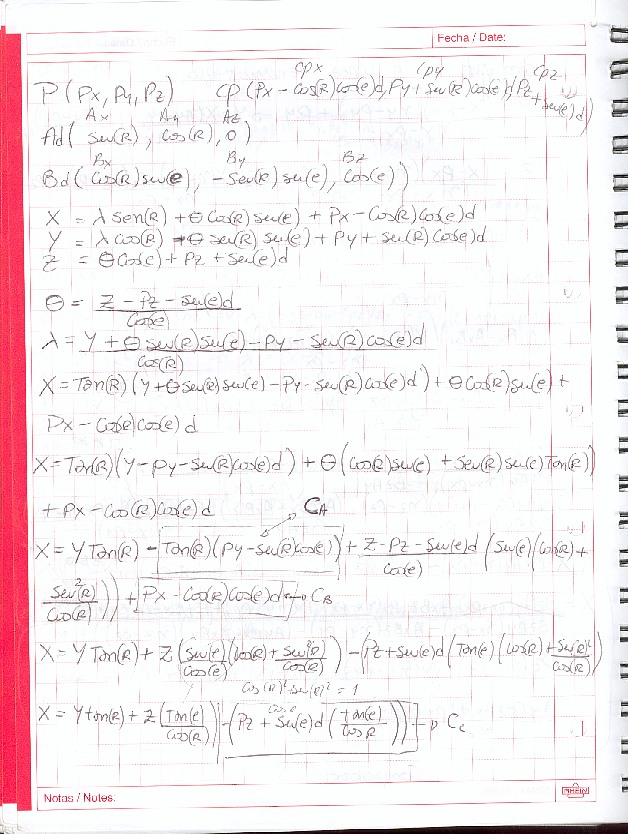 Fecha / Date:
P(Px, Py, Pz) CP(Px - Cos(R)Cos(e)d, Py + Sen(R)Cos(e)d, Pz + Sen(e)d)
Cpx Cpy Cpz
Ax Ay Az
Ad( Sen(R), Cos(R), 0)
Bx By Bz
Bd( Cos(R)Sen(e), -Sen(R)Sen(e), Cos(e))
X = λ Sen(R) + Θ Cos(R)Sen(e) + Px - Cos(R)Cos(e)d
Y = λ Cos(R) - Θ Sen(R) Sen(e) + Py + Sen(R)Cos(e)d
Z = Θ Cos(e) + Pz + Sen(e)d
Θ = Z - Pz - Sen(e)d / Cos(e)
λ = Y + Θ Sen(R)Sen(e) - Py - Sen(R)Cos(e)d / Cos(R)
X = Tan(R)(Y + Θ Sen(R)Sen(e) - Py - Sen(R)Cos(e)d) + Θ Cos(R)Sen(e) +
Px - Cos(R)Cos(e)d
X = Tan(R)(Y - Py - Sen(R)Cos(e)d) + Θ(Cos(R)Sen(e) + Sen(R)Sen(e)Tan(R))
+ Px - Cos(R)Cos(e)d
CA
X = Y Tan(R) - Tan(R)(Py - Sen(R)Cos(e)) + Z - Pz - Sen(e)d / Cos(e) (Sen(e)(Cos(R) +
Sen²(R) / Cos(R))) + Px - Cos(R)Cos(e)d → CB
X = Y Tan(R) + Z(Sen(e) / Cos(e) (Cos(R) + Sen²(R) / Cos(R))) - (Pz + Sen(e)d (Tan(e)(Cos(R) + Sen(R)² / Cos(R))
Cos(R)² Sen(R)² = 1
X = Y tan(R) + Z(Tan(e) / Cos(R)) - (Pz + Sen(e)d (tan(e) / Cos R)) → Cc
Notas / Notes:
RHEIN